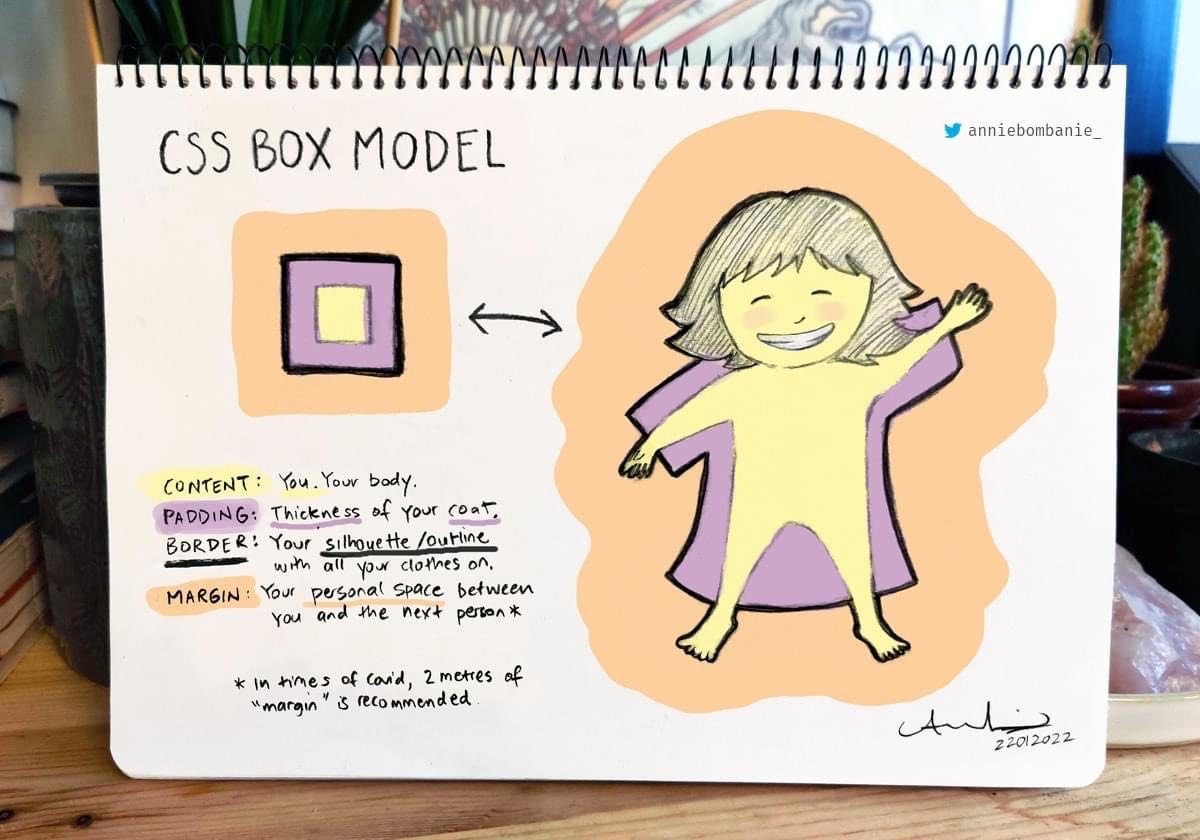 CSS BOX MODEL
anniebombanie_
CONTENT: You. Your body.
PADDING: Thickness of your coat.
BORDER: Your silhouette/outline
with all your clothes on.
MARGIN: Your personal space between
you and the next person*
* In times of covid, 2 metres of
"margin" is recommended.
22012022